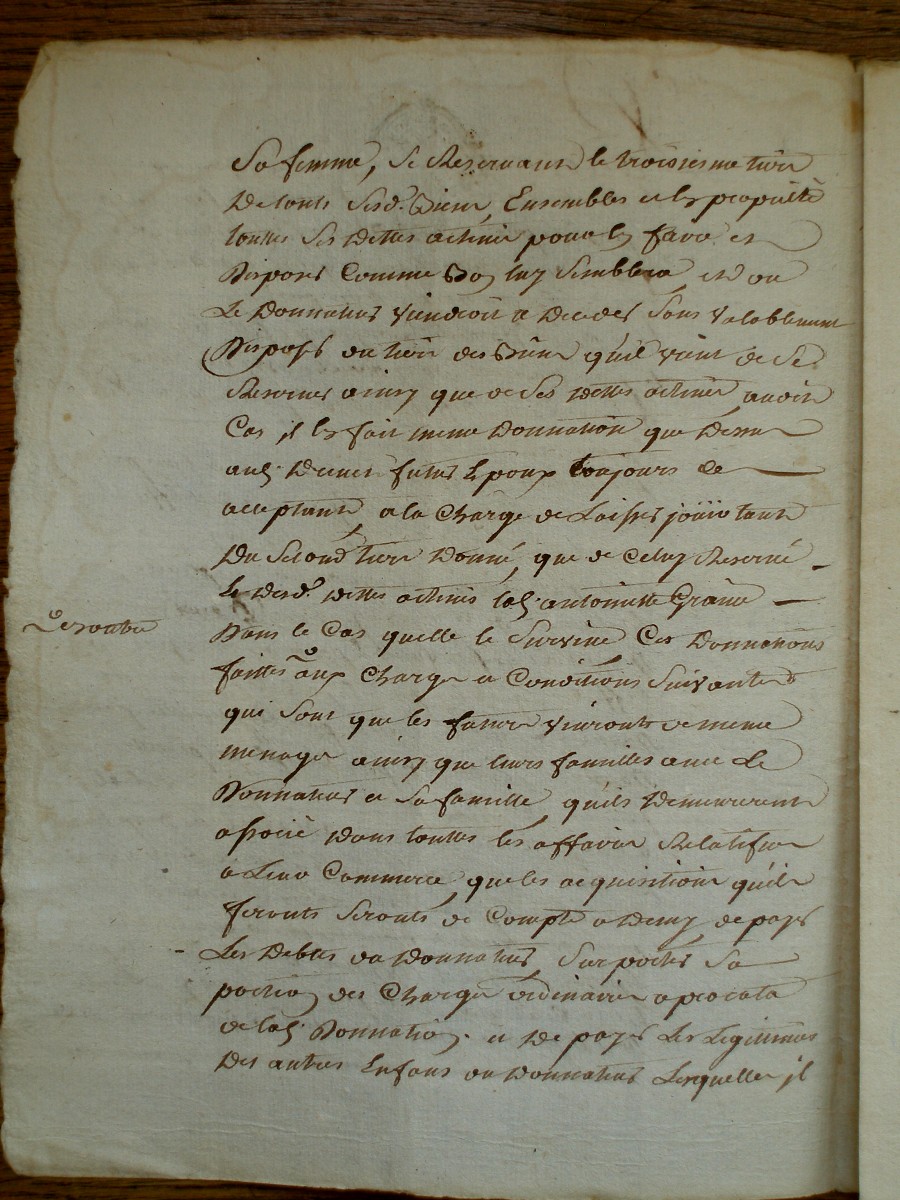 Sa femme, Se Reservant le troisiesme tiers
De touts Sesd. Biens, Ensembles et la propriété
touttes Ses dettes actives pour en faire et
Disposer Comme Bon luy Semblera, et ou
Le Donnateur viendroit a Deceder Sans valablement
Disposer du tiers des Biens qu'il vient de Se
Reserver ainsy que de Ses dettes actives, audit
Cas, il les fait meme Donnation que Dessus
auxd. futurs Epoux toujours de
aceptants, a la Charge de Laisser jouir tant
Du Second tiers Donné, que de Celuy Reservé
Et desd. dettes actives lad. antoinette Graine
Dans le Cas quelle le Survive Ces Donnations
faittes aux Charges et Conditions Suivantes
qui Sont que les futurs vivronts de meme
menage ainsy que leurs familles avec Le
Donnateur et Sa famille, qu'ils Demeureront
associé dans touttes les affaires Relatives
a Leur Commerce, que les acquisitions qu'ils
feronts Seronts de Compte a demy, de payer
Les Debtes du Donnateur, Suporter Sa
portion des Charges ordinaires a procata
de lad. Donnation. et De payer Les Legitimes
Des autres Enfans du Donnateur Lesquelles il